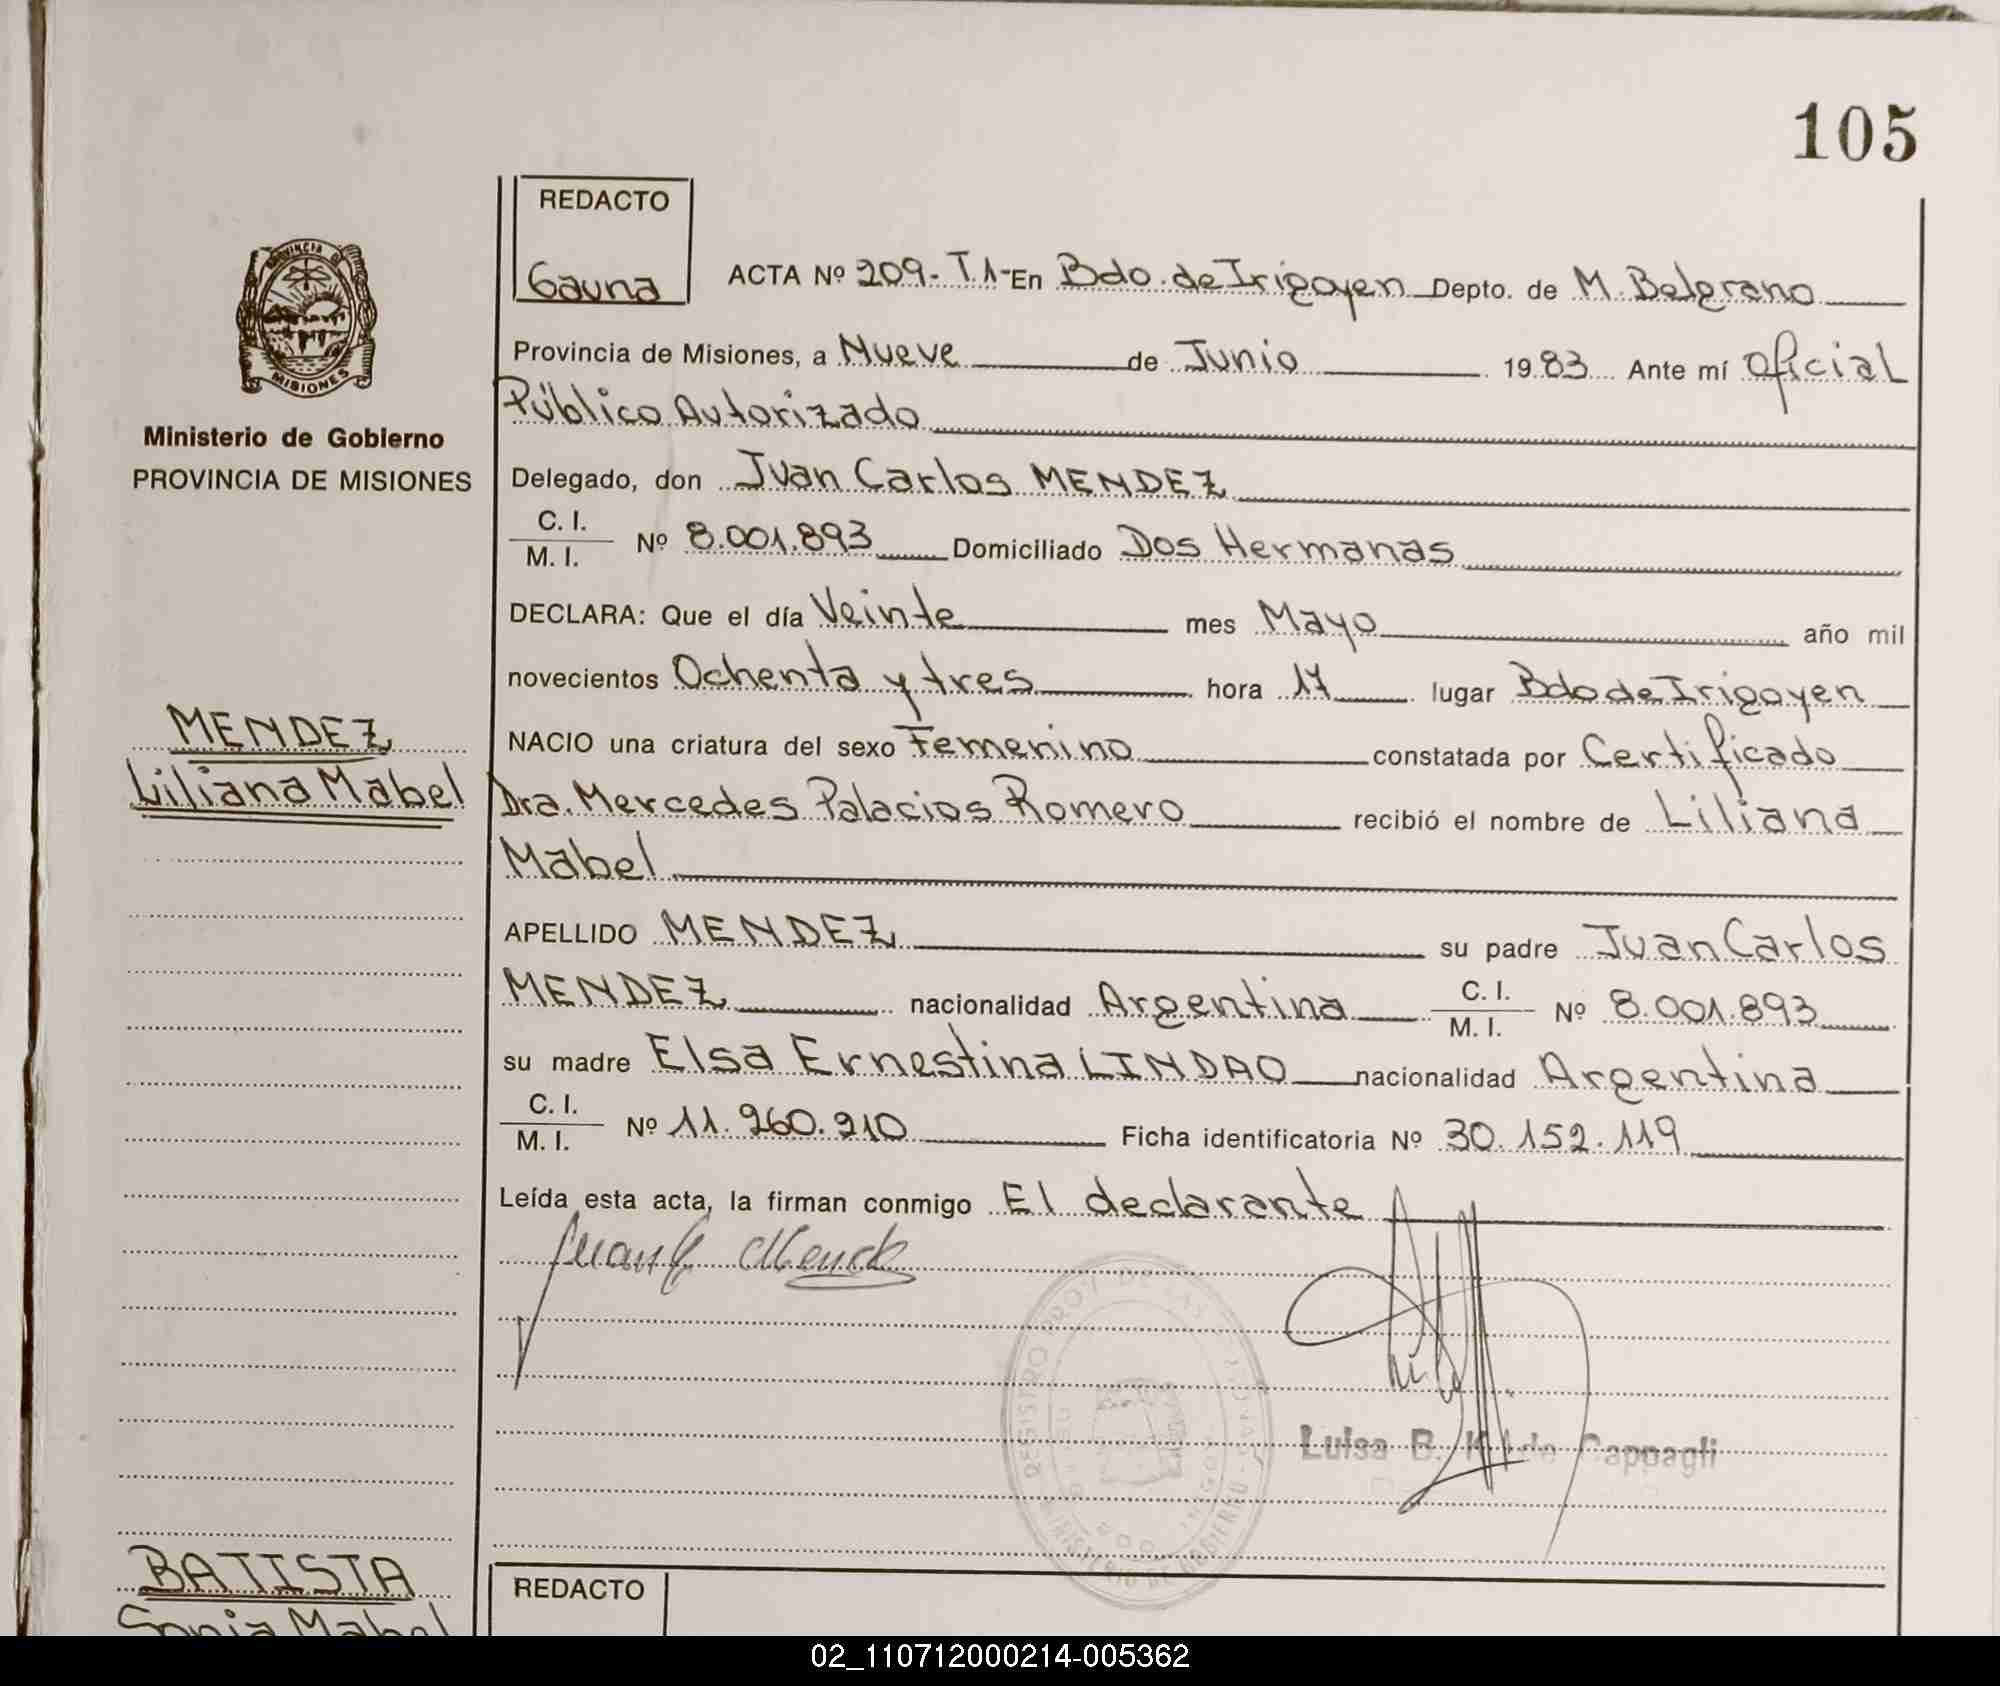 105
REDACTO
Gauna
ACTA Nº 209- T.1- En Bdo. de Irigoyen Depto. de M. Belgrano
PROVINCIA DE
MISIONES
Provincia de Misiones, a Nueve de Junio 1983 Ante mí Oficial
Público Autorizado
Ministerio de Gobierno
PROVINCIA DE MISIONES
Delegado, don Juan Carlos MENDEZ
C. I.
M. I. Nº 8.001.893 Domiciliado Dos Hermanas
DECLARA: Que el día Veinte mes Mayo año mil
novecientos Ochenta y tres hora 17 lugar Bdo de Irigoyen
MENDEZ
Liliana Mabel
NACIO una criatura del sexo Femenino constatada por Certificado
Dra. Mercedes Palacios Romero recibió el nombre de Liliana
Mabel
APELLIDO MENDEZ su padre Juan Carlos
MENDEZ nacionalidad Argentina C. I.
M. I. Nº 8.001.893
su madre Elsa Ernestina LINDAO nacionalidad Argentina
C. I.
M. I. Nº 11.260.210 Ficha identificatoria Nº 30.152.119
Leída esta acta, la firman conmigo El declarante
Luisa B. K. de Cappagli
BATISTA
Sonia Mabel
REDACTO
02_110712000214-005362